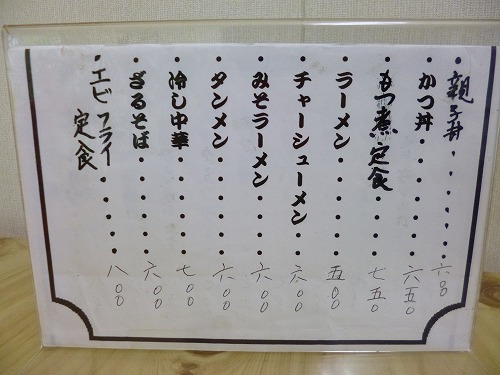 ・親子丼・・・・・・・六〇〇
・かつ丼・・・・・・・六五〇
・もつ煮定食・・・・七五〇
・ラーメン・・・・・・五〇〇
・チャーシューメン・・六〇〇
・みそラーメン・・・・六〇〇
・タンメン・・・・・・六〇〇
・冷し中華・・・・・・七〇〇
・ざるそば・・・・・・六〇〇
・エビフライ定食・・・・八〇〇